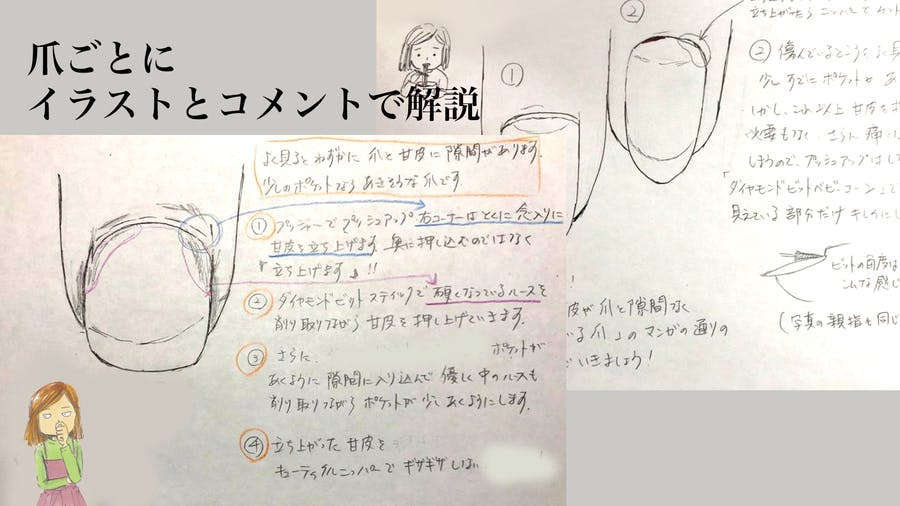 爪ごとに
イラストとコメントで解説
よく見るとわずかに 爪と甘皮に隙間があります。
少しのポケットなら あきそうな爪です。
① プッシャーで プッシュアップ 右コーナーはとくに念入りに
甘皮を立ち上げます 奥に押し込むのではなく
「立ち上げます」!!
② ダイヤモンドビット スティックで 硬くなっているルースを
削り取りながら 甘皮を押し上げていきます。
③ さらに ポケットが
あくように 隙間に入り込んで 優しく 中のルースも
削り取りながら ポケットが 少し あくようにします。
④ 立ち上がった 甘皮を
キューティクルニッパーで ギザギザ
①
②
立ち上がったら ニッパーで
② 傷んでいるところ
少し すでに ポケットが あ
しかし、これ以上 甘皮を
必要もなく、さらに 痛
しまうので、プッシュアップは
「ダイヤモンドビットベビーコーン」で
見えている 部分だけ キレイに
ビットの角度は
こんな感じ
(写真の親指も同じ
皮が 爪と隙間なく
いる爪」の マンガの通りの
いきましょう!